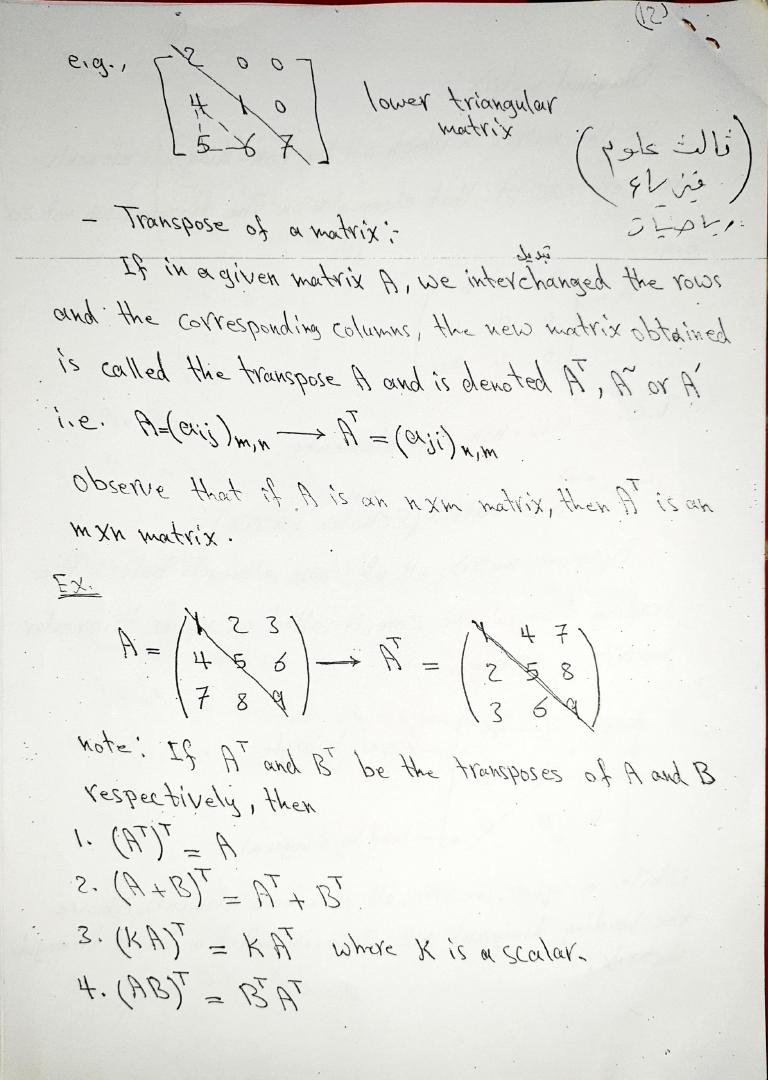 (12)
e.g.,
2 0 0
4 1 0
5 6 7
lower triangular
matrix
(ثالث علوم
فيزياء
رياضيات)
- Transpose of a matrix:-
تبديل
If in a given matrix A, we interchanged the rows
and the corresponding columns, the new matrix obtained
is called the transpose A and is denoted Aᵀ, A~ or A′
i.e. A=(aij)m,n → Aᵀ = (aji)n,m
observe that if A is an nxm matrix, then Aᵀ is an
mxn matrix.
Ex.
A = (1 2 3 → Aᵀ = (1 4 7
4 5 6 2 5 8
7 8 9) 3 6 9)
note: If Aᵀ and Bᵀ be the transposes of A and B
respectively, then
1. (Aᵀ)ᵀ = A
2. (A + B)ᵀ = Aᵀ + Bᵀ
3. (KA)ᵀ = KAᵀ where K is a scalar.
4. (AB)ᵀ = BᵀAᵀ